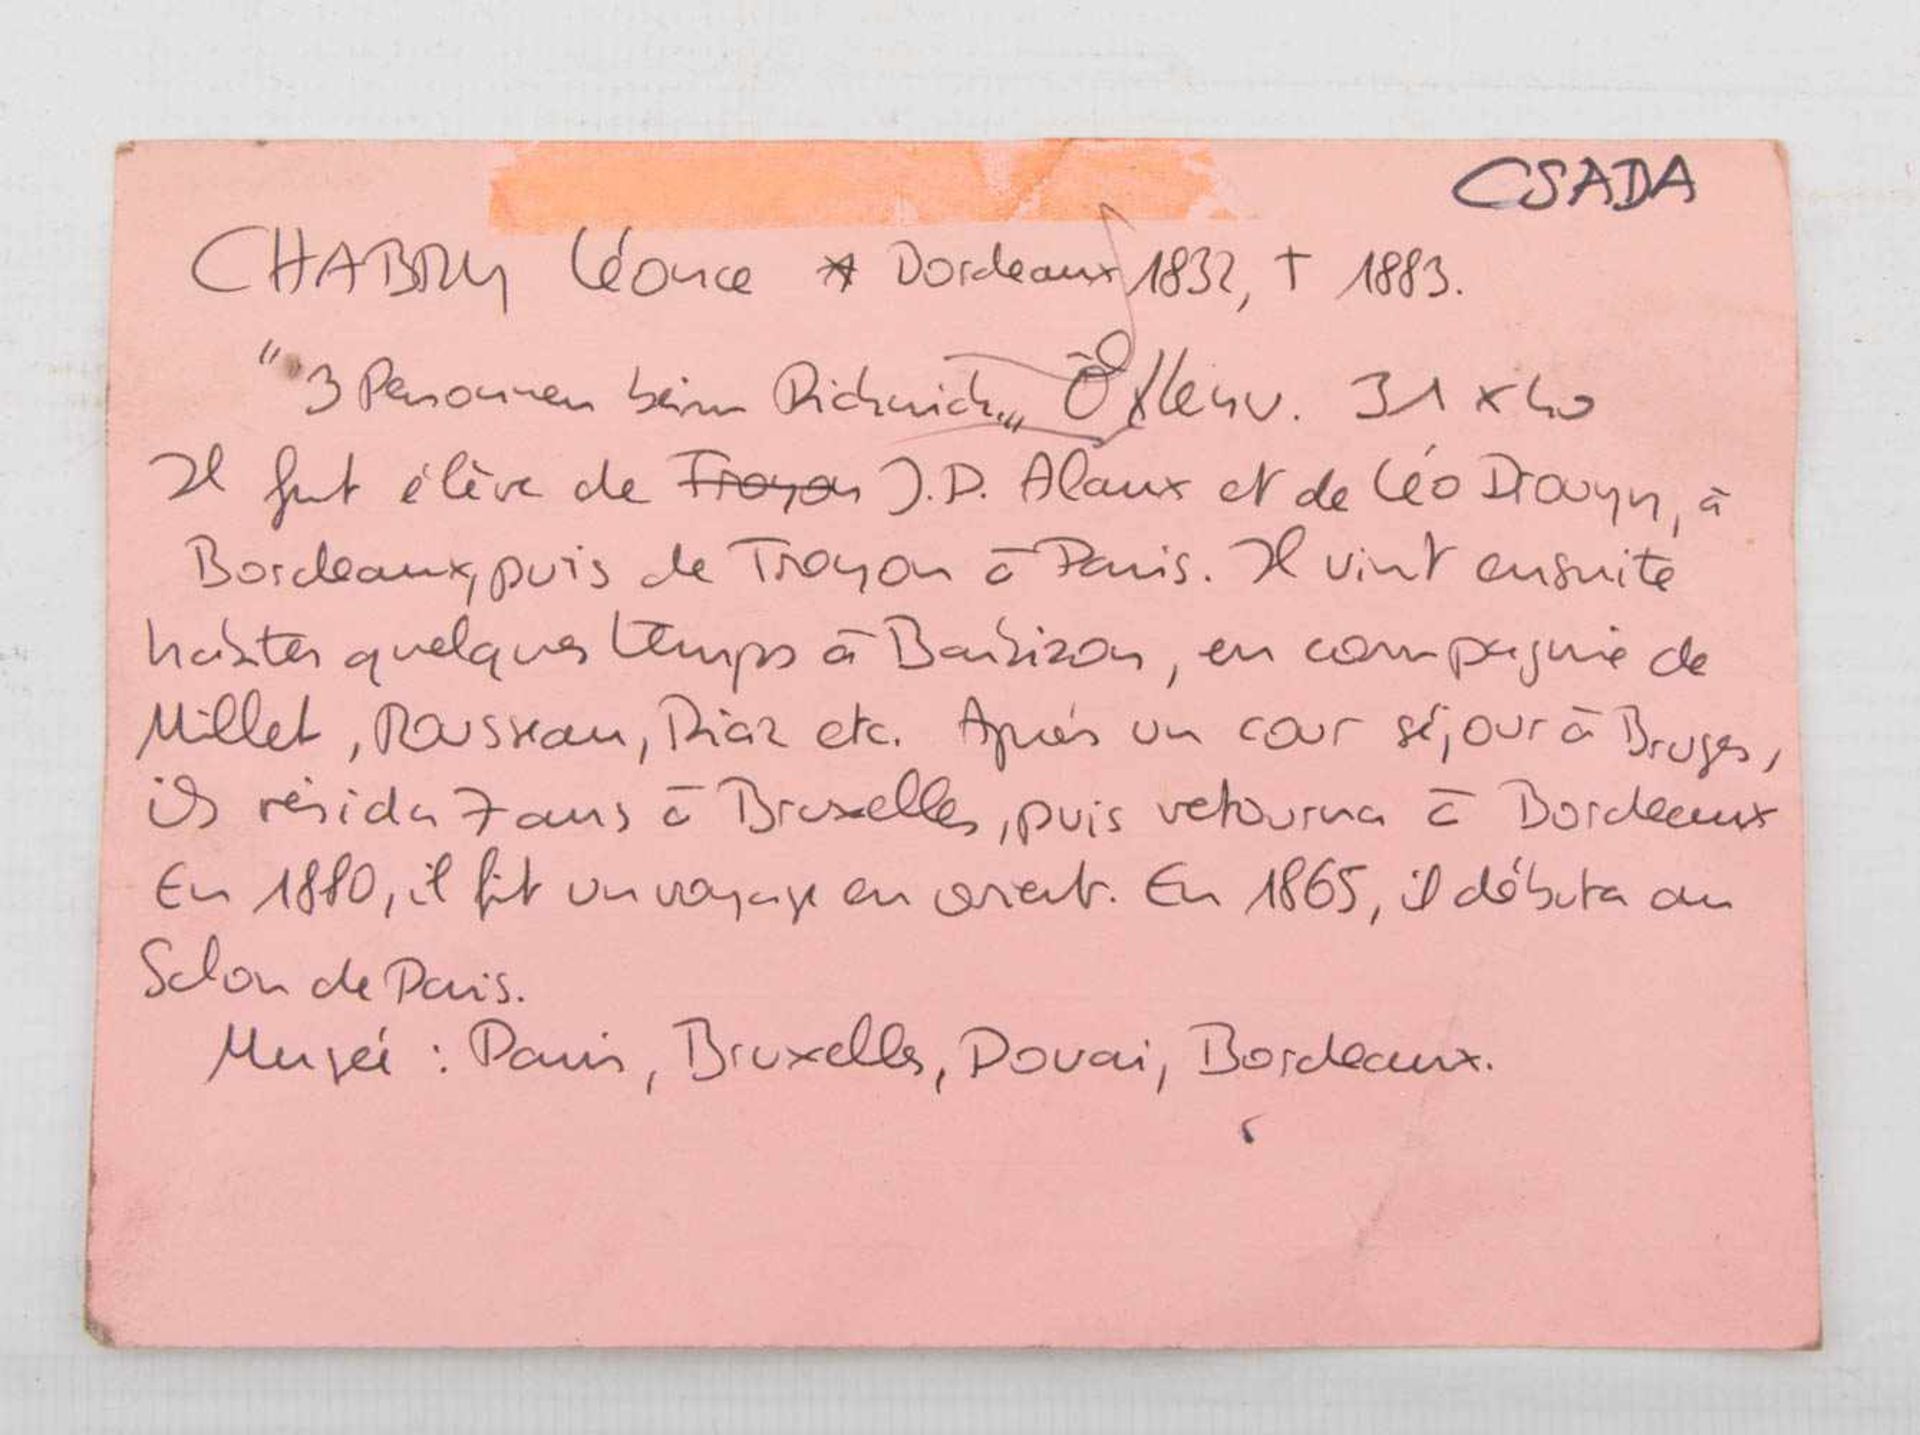 CSADA
CHABRY Léonce * Bordeaux 1832, † 1883.
"3 Personen beim Picknick" Öl/Lenw. 31 x 40
Il fut élève de Troyon J.P. Alaux et de Léo Drouyn, à
Bordeaux, puis de Troyon à Paris. Il vint ensuite
habiter quelques temps à Barbizon, en compagnie de
Millet, Rousseau, Diaz etc. Après un cour séjour à Bruges,
ils résida 7 ans à Bruxelles, puis retourna à Bordeaux
En 1880, il fit un voyage en orient. En 1865, il débuta au
Salon de Paris.
Museé : Paris, Bruxelles, Douai, Bordeaux.